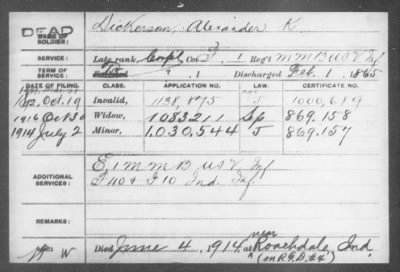 DEAD
NAME OF SOLDIER: Dickerson, Alexander K.
SERVICE: Late rank, Corpl Co. J, 1 Reg't M M B U S V Inf
TERM OF SERVICE: 1 Discharged Feb. 1, 1865
DATE OF FILING. CLASS. APPLICATION NO. LAW. CERTIFICATE NO.
Oct. 19 Invalid, 1138,875 J 1000,689
1916 Oct 30 Widow, 1083211 Sp 869.158
1914 July 2 Minor, 1.030,544 J 869.157
ADDITIONAL SERVICES: E 1 M M B U S V Inf
F 40 & F 10 Ind. Inf.
REMARKS:
W Died June 4, 1914, at near Roachdale, Ind.
(on R.F.D. #4)